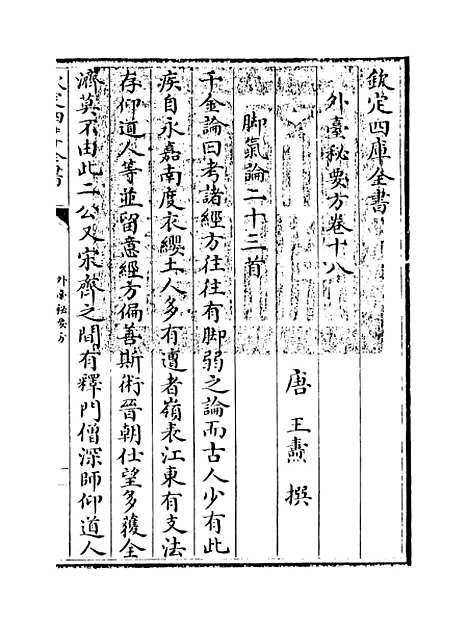 欽定四庫全書
外臺秘要方卷十八
唐 王燾 撰
脚氣論二十三首
千金論曰考諸經方往往有脚弱之論而古人少有此
疾自永嘉南度衣纓士人多有遭者嶺表江東有支法
存仰道人等並留意經方偏善斯術晉朝仕望多獲全
濟莫不由此二公又宋齊之間有釋門僧深師仰道人
欽定四庫全書
外臺秘要方
一